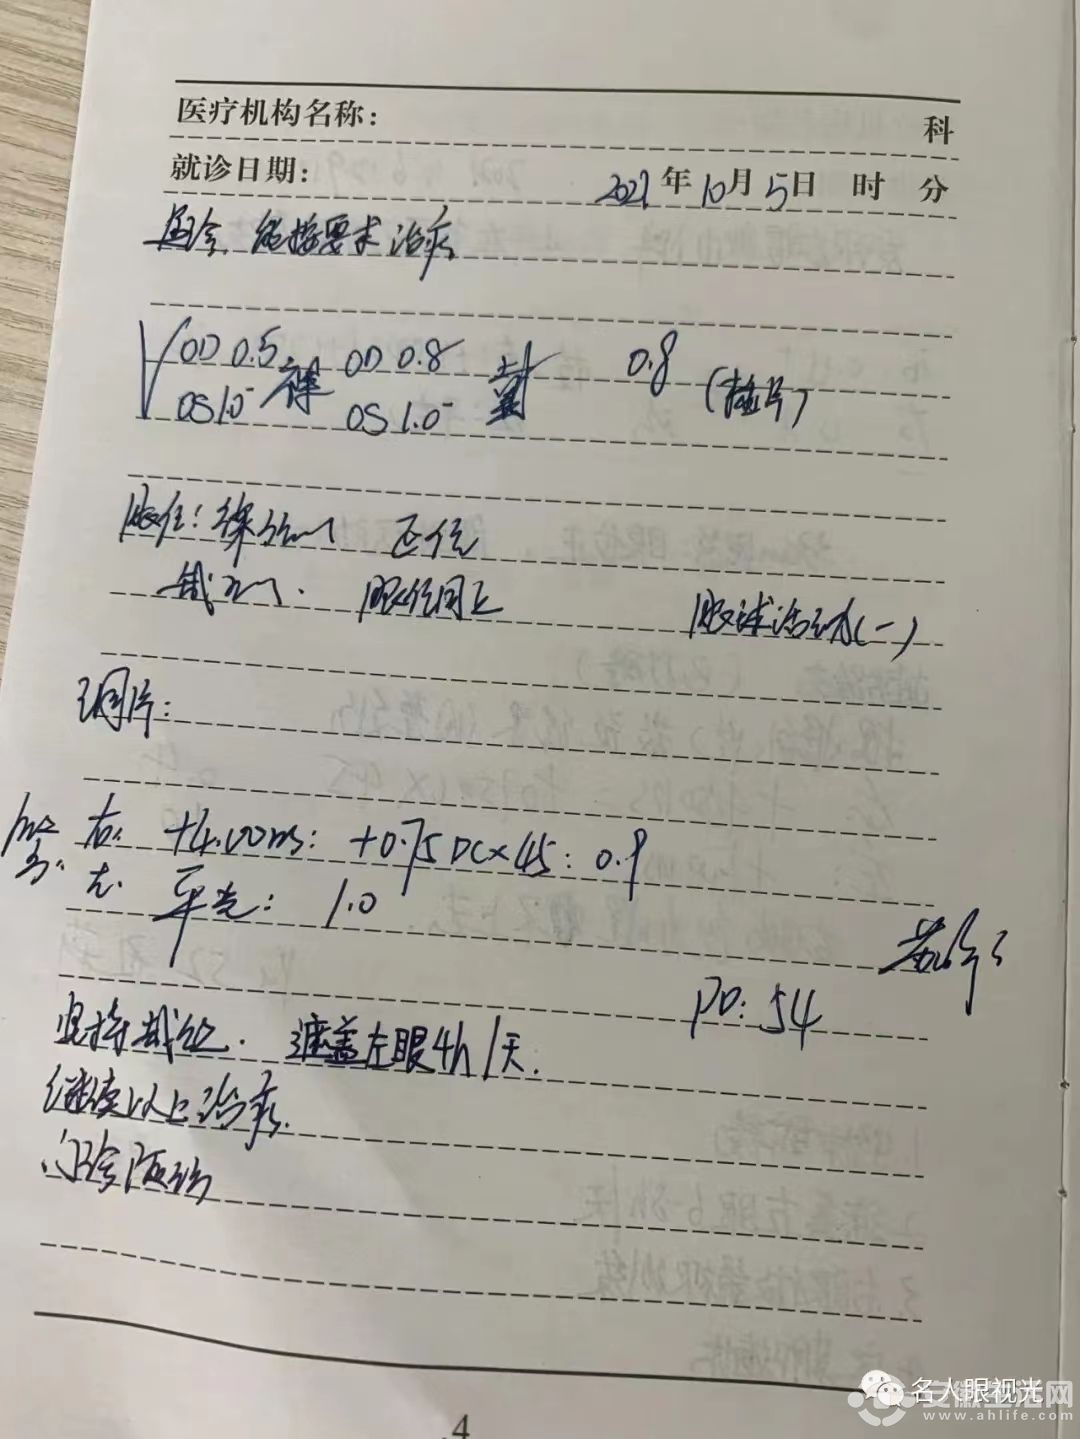 医疗机构名称: 科
就诊日期: 2021年10月5日 时 分
复诊, 能按要求治疗
V OD 0.5 裸 OD 0.8 戴 0.8 (插片)
OS 1.0⁻ OS 1.0⁻
眼位: 裸 正位
戴 眼位同上 眼球活动(一)
调片:
右: +4.00DS: +0.75DC×45: 0.9
左: 平光: 1.0
PD: 54
坚持戴镜. 遮盖左眼4h/天.
继续以上治疗.
门诊随访
.4
名人眼视光
安徽生活网
www.ahlife.com